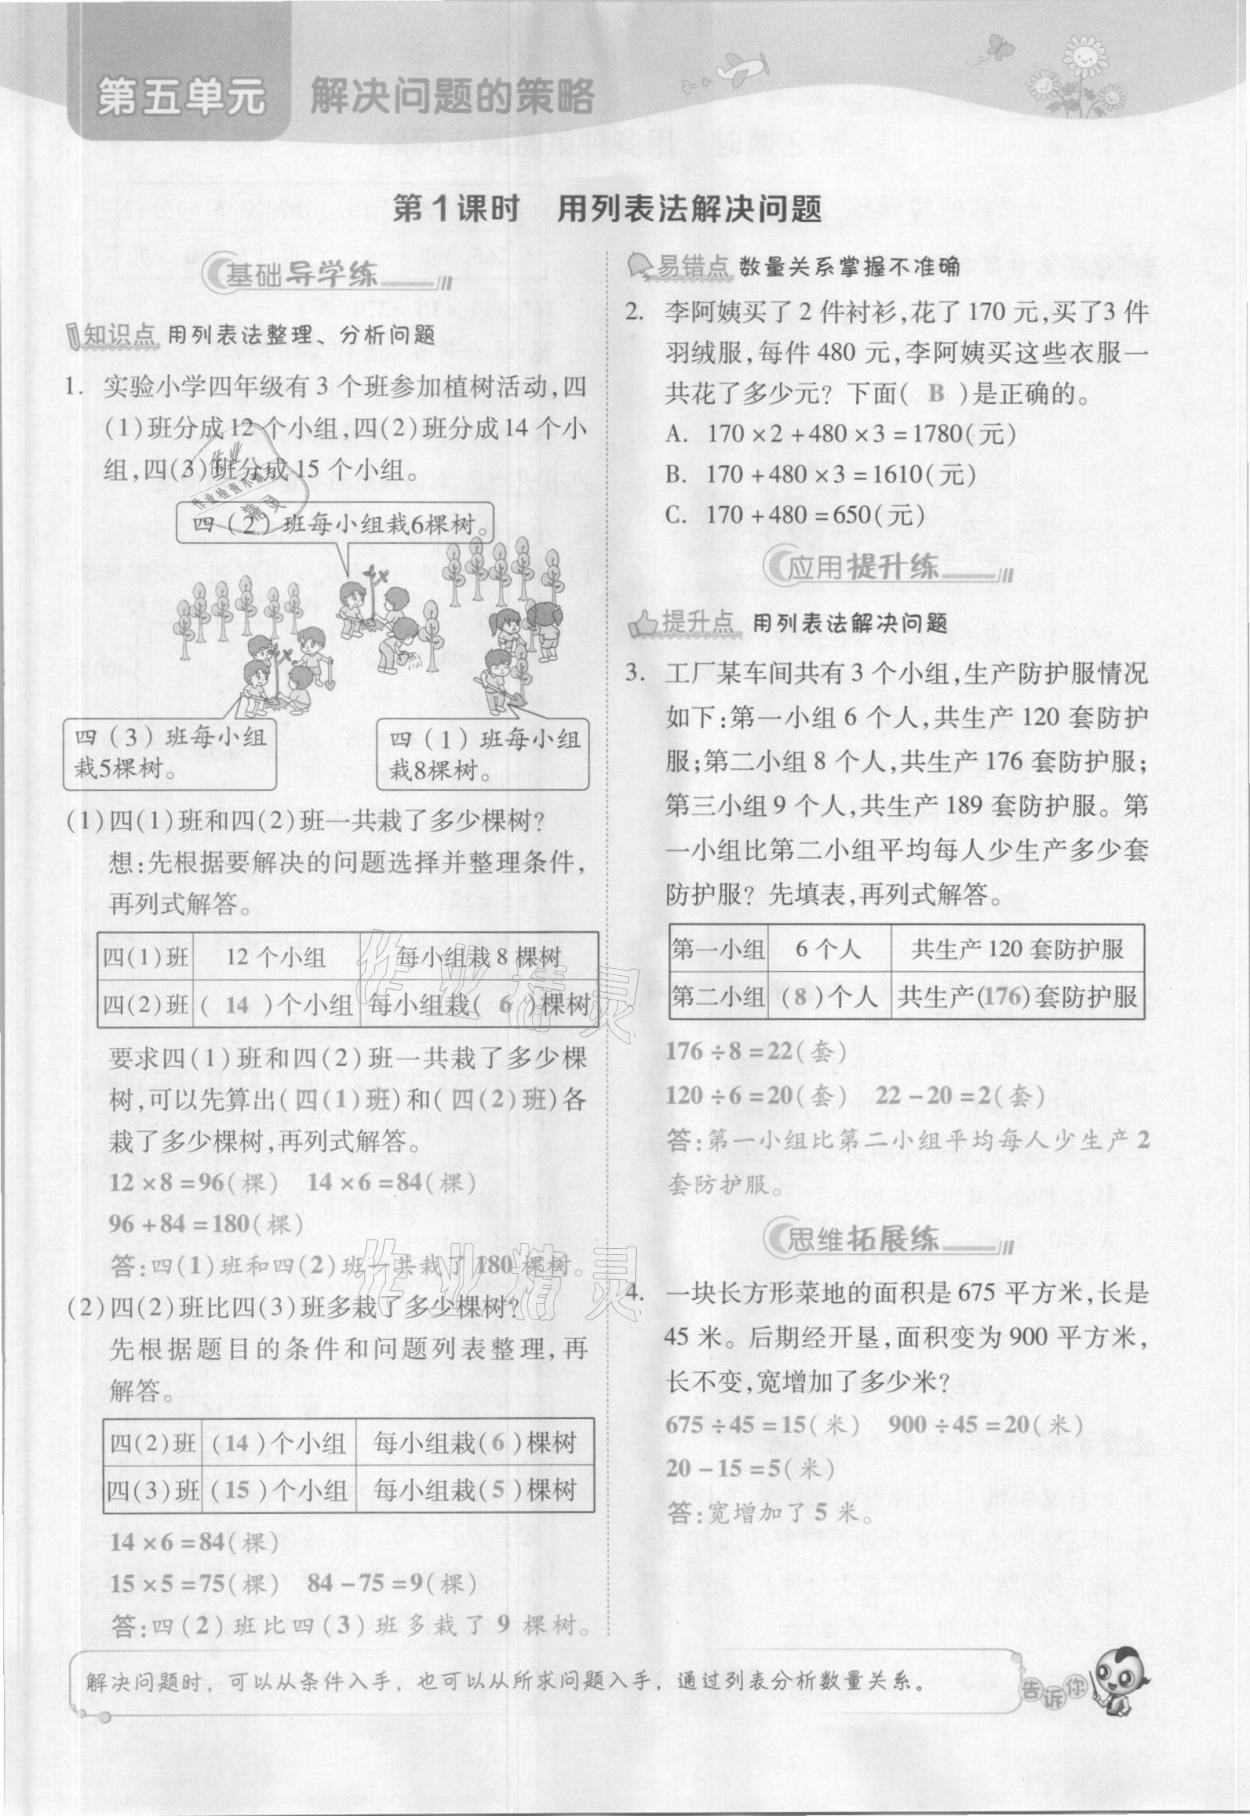 第五单元 解决问题的策略
第1课时 用列表法解决问题
基础导学练
知识点 用列表法整理、分析问题
1. 实验小学四年级有3个班参加植树活动,四
(1)班分成12个小组,四(2)班分成14个小
组,四(3)班分成15个小组。
四(2)班每小组栽6棵树。
四(3)班每小组
栽5棵树。
四(1)班每小组
栽8棵树。
(1)四(1)班和四(2)班一共栽了多少棵树?
想:先根据要解决的问题选择并整理条件,
再列式解答。
四(1)班 12个小组 每小组栽8棵树
四(2)班 ( 14 )个小组 每小组栽( 6 )棵树
要求四(1)班和四(2)班一共栽了多少棵
树,可以先算出(四(1)班)和(四(2)班)各
栽了多少棵树,再列式解答。
12×8=96(棵) 14×6=84(棵)
96+84=180(棵)
答:四(1)班和四(2)班一共栽了180棵树。
(2)四(2)班比四(3)班多栽了多少棵树?
先根据题目的条件和问题列表整理,再
解答。
四(2)班 (14)个小组 每小组栽(6)棵树
四(3)班 (15)个小组 每小组栽(5)棵树
14×6=84(棵)
15×5=75(棵) 84-75=9(棵)
答:四(2)班比四(3)班多栽了9棵树。
易错点 数量关系掌握不准确
2. 李阿姨买了2件衬衫,花了170元,买了3件
羽绒服,每件480元,李阿姨买这些衣服一
共花了多少元? 下面( B )是正确的。
A. 170×2+480×3=1780(元)
B. 170+480×3=1610(元)
C. 170+480=650(元)
应用提升练
提升点 用列表法解决问题
3. 工厂某车间共有3个小组,生产防护服情况
如下:第一小组6个人,共生产120套防护
服;第二小组8个人,共生产176套防护服;
第三小组9个人,共生产189套防护服。第
一小组比第二小组平均每人少生产多少套
防护服? 先填表,再列式解答。
第一小组 6个人 共生产120套防护服
第二小组 (8)个人 共生产(176)套防护服
176÷8=22(套)
120÷6=20(套) 22-20=2(套)
答:第一小组比第二小组平均每人少生产2
套防护服。
思维拓展练
4. 一块长方形菜地的面积是675平方米,长是
45米。后期经开垦,面积变为900平方米,
长不变,宽增加了多少米?
675÷45=15(米) 900÷45=20(米)
20-15=5(米)
答:宽增加了5米。
解决问题时,可以从条件入手,也可以从所求问题入手,通过列表分析数量关系。
告诉你
作业精灵
作业精灵